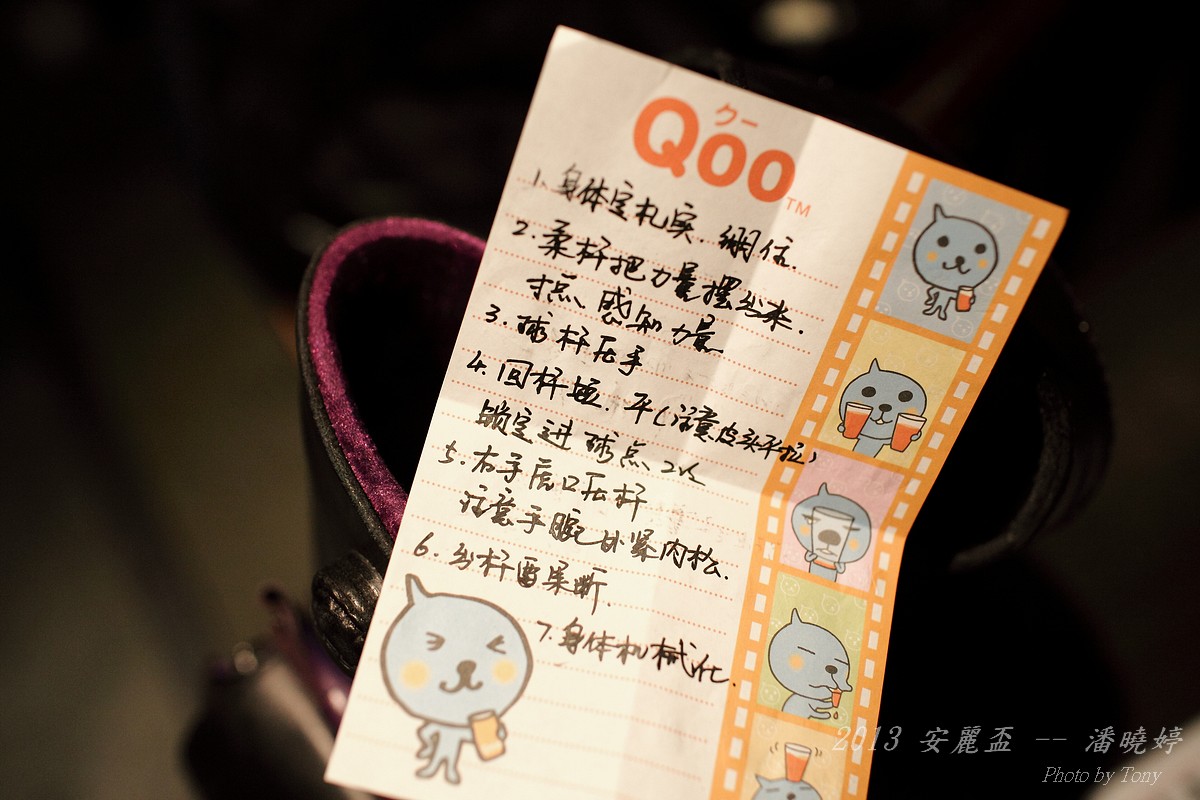 クー
Qoo™
1. 身体宝扎实. 绷住.
2. 柔杆把力量摆出来.
才点、感知力量
3. 球杆压手
4. 回杆 . 平(注意皮头平拉)
锁定进球点2次
5. 右手虎口压杆
注意手腕外紧内松.
6. 出杆要果断.
7. 身体机械化.
2013 安麗盃 -- 潘曉婷
Photo by Tony